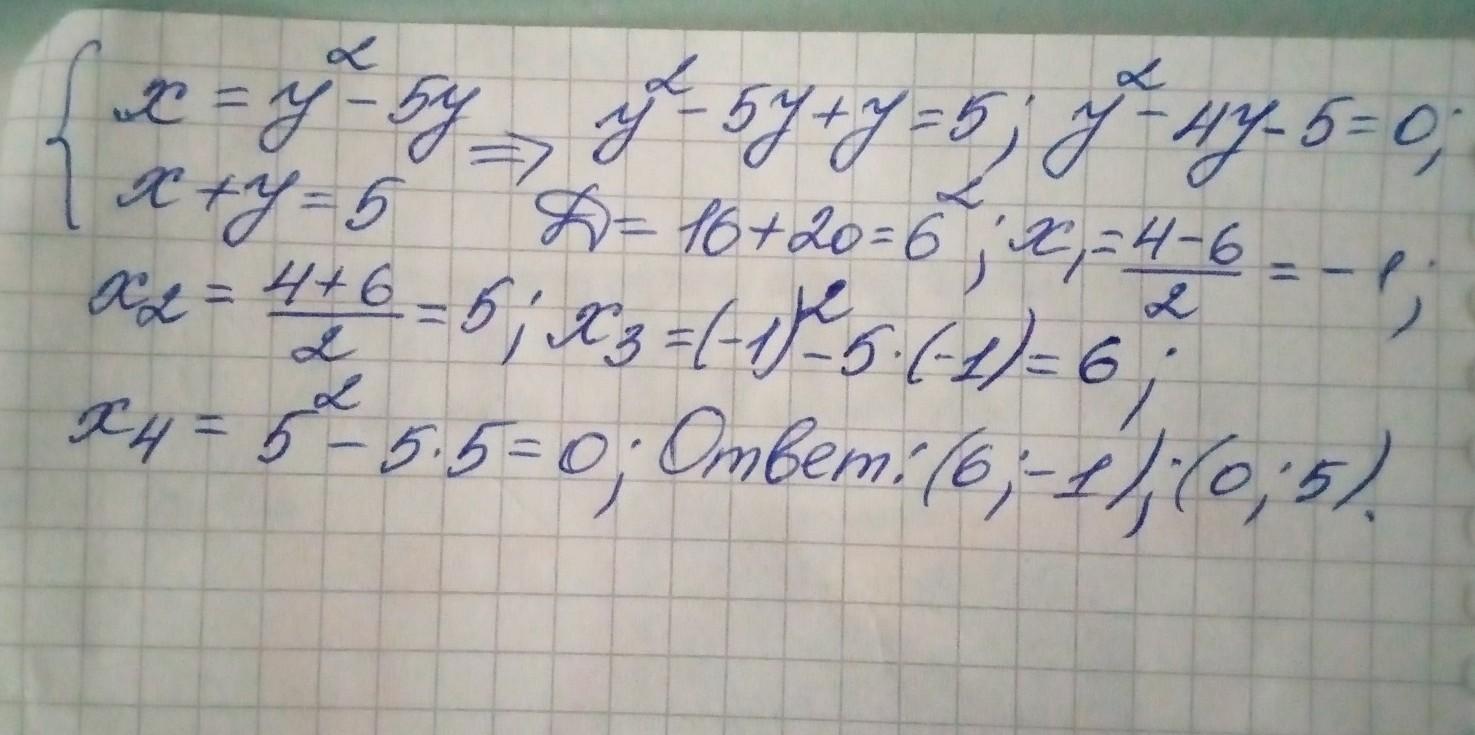 { x = y² - 5y => y² - 5y + y = 5; y² - 4y - 5 = 0;
x + y = 5 D = 16 + 20 = 6²; x₁ = (4-6)/2 = -1;
x₂ = (4+6)/2 = 5; x₃ = (-1)² - 5·(-1) = 6;
x₄ = 5² - 5·5 = 0; Ответ: (6;-1); (0;5).